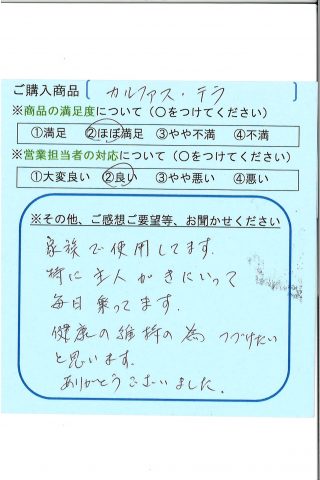 ご購入商品 [カルファス・テラ
※商品の満足度について（○をつけてください）
①満足 ②ほぼ満足 ③やや不満 ④不満
※営業担当者の対応について（○をつけてください）
①大変良い ②良い ③やや悪い ④悪い
※その他、ご感想ご要望等、お聞かせください
家族で使用してます.
特に主人がきにいって
毎日乗ってます.
健康の維持の為 つづけたい
と思います.
ありがとうございました.